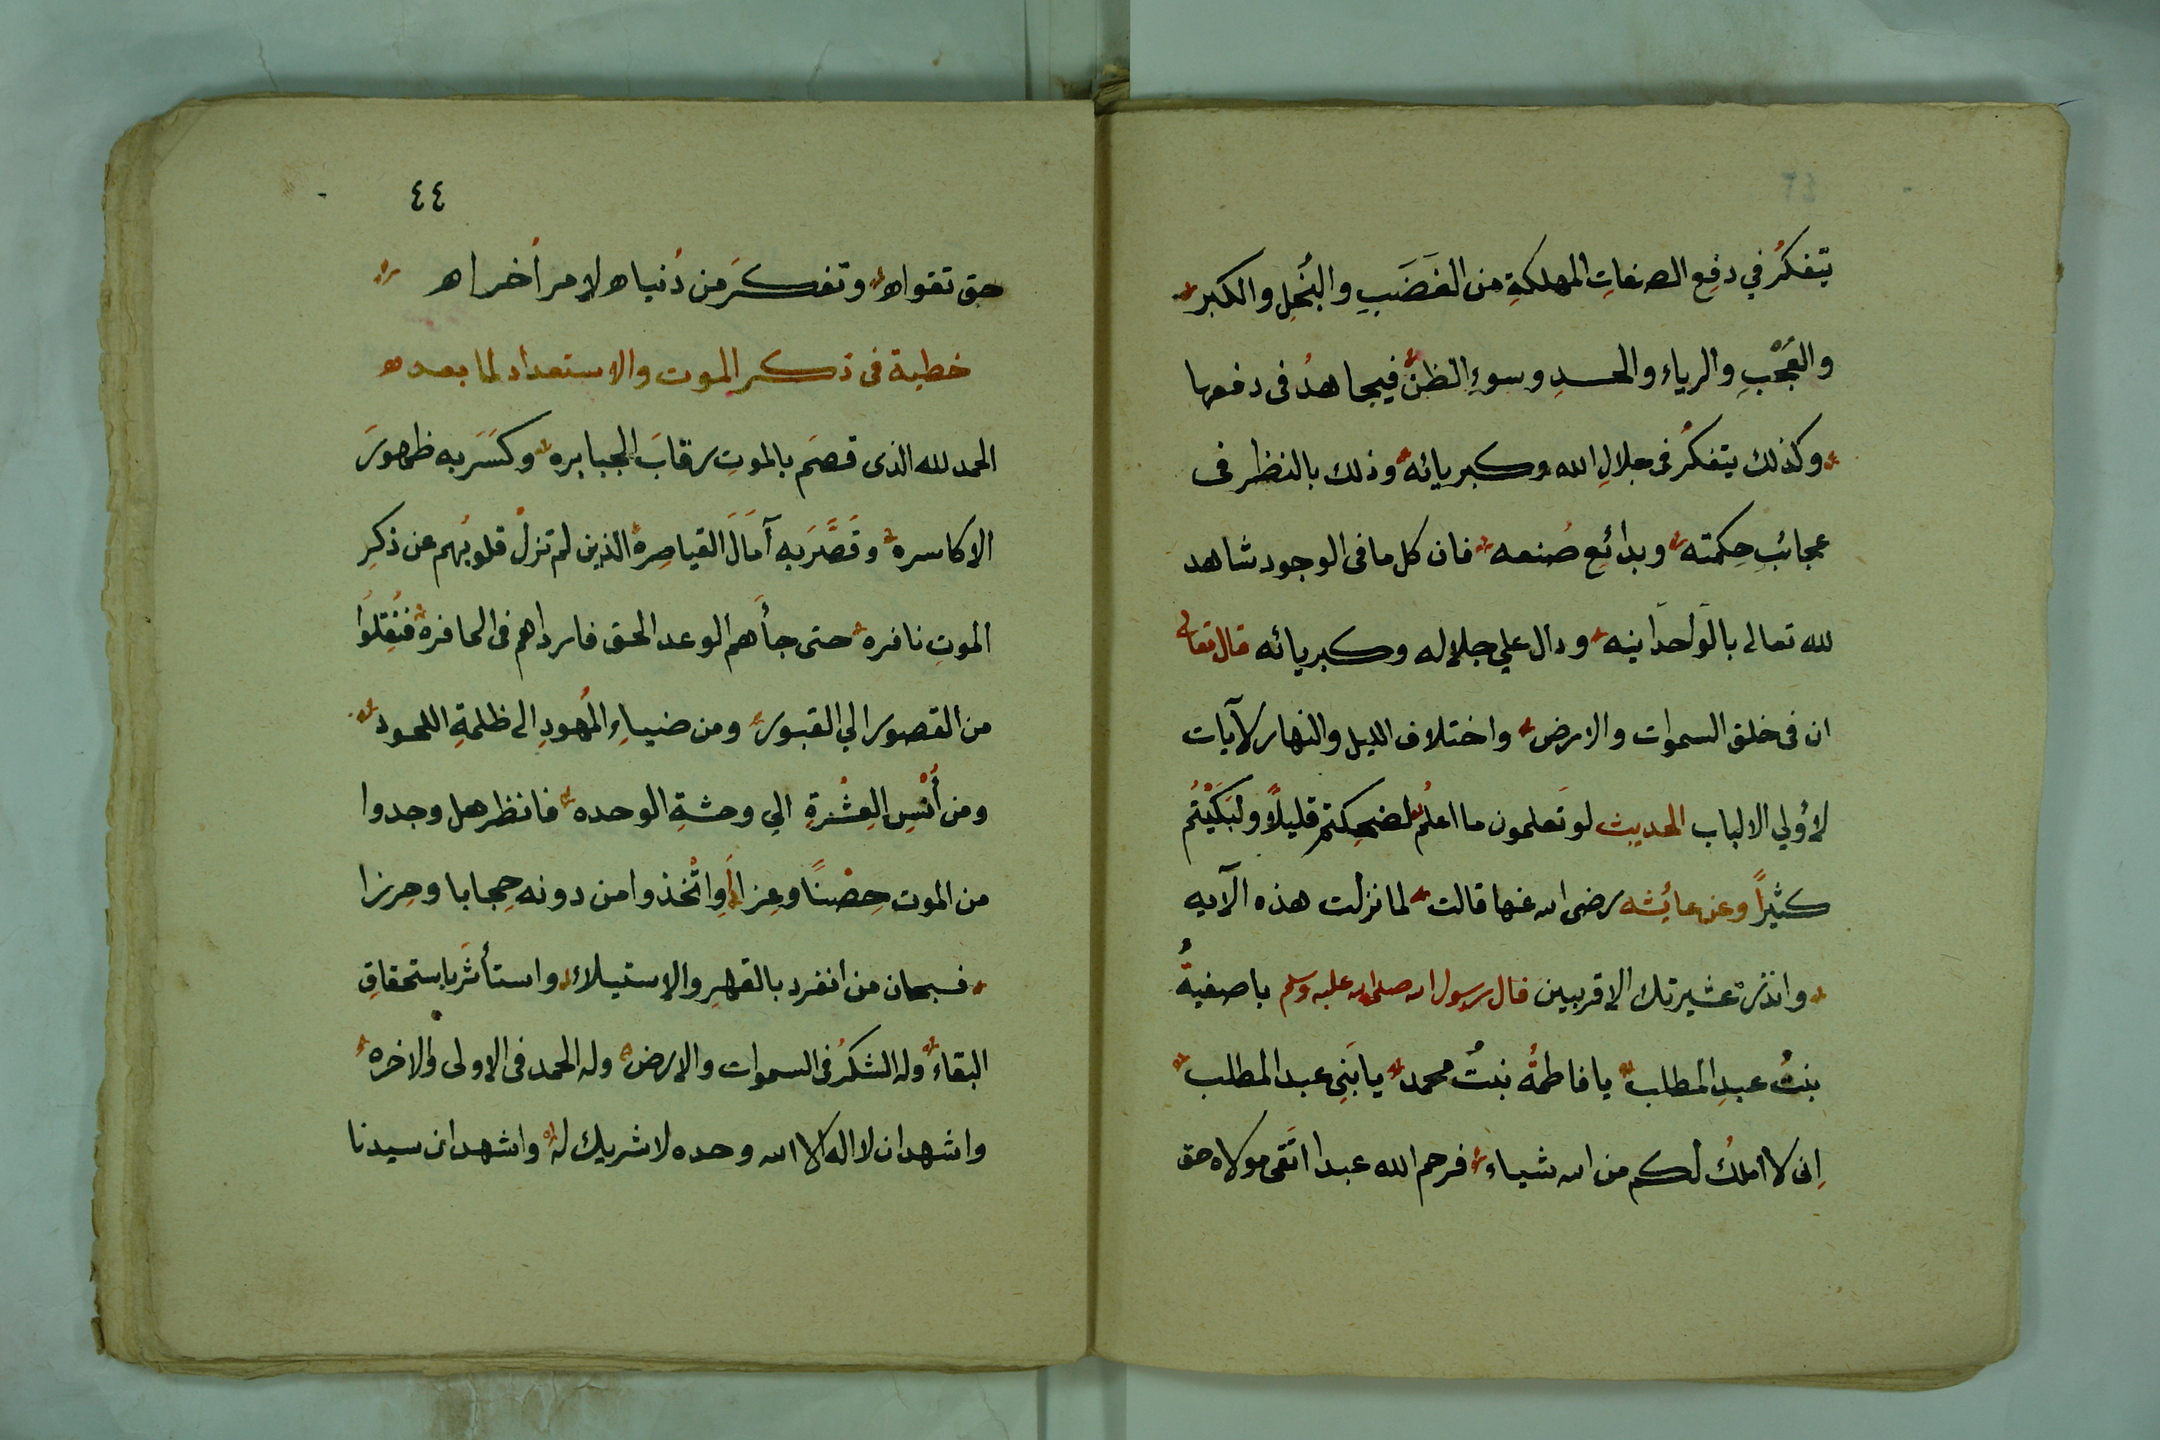 يتفكرُ في دفعِ الصفاتِ المهلكةِ من الغَضَبِ والبُخلِ والكبر
والعُجْبِ والرياء والحسدِ وسوءِ الظنِّ فيجاهدُ فى دفعها
وكذلك يتفكرُ فى جلالِ الله وكبريائه وذلك بالنظر فى
عجائبِ حِكمته وبدائعِ صُنعه فان كل ما فى الوجود شاهد
لله تعالى بالوَاحدَانيه ودال علي جلاله وكبريائه قال تعالى
ان فى خلق السموات والارض واختلاف الليل والنهار لآيات
لأولي الالباب الحديث لو تَعلمون ما اعلمُ لضحِكتم قليلاً ولبَكَيْتُم
كثيراً وعن عائشه رضى الله عنها قالت لما نزلت هذه الآيه
وانذرْ عشيرتك الاقربين قال رسول الله صلى الله عليه وسلم يا صفيةُ
بنتُ عبدِ المطلب يا فاطمةُ بنتُ محمد يا بَنِى عبد المطلب
اِنى لا املكُ لكم من الله شياء فرحم الله عبدا اتَّقى مولاه حق
٤٤
حق تقواه وتفكرَ من دُنياه لامر اُخراه
خطبة فى ذكر الموت والاستعداد لما بعده
الحمد لله الذى قصَم بالموتِ رقابَ الجبابره وكسَرَ به ظهورَ
الاكاسره وقَصَّرَ به آمَالَ القياصِرةِ الذين لم تزلْ قلوبُهم عن ذكرِ
الموتِ نافره حتى جأَهم الوعد الحق فارداهم فى الحافرة فنُقِلُوا
من القصور الي القبور ومن ضياءِ المُهودِ الى ظلمةِ اللحود
ومن أُنْسِ العِشْرةِ الي وحشةِ الوحده فانظر هل وجدوا
من الموت حِصْنًا وعِزا او اتَّخذوا من دونه حِجابا وحِرزا
فسبحان من انفرد بالقهرِ والاستيلاء واستأثرَ باستحقاقِ
البقاء وله الشكرُ فى السموات والارض وله الحمد فى الاولى والاخره
واشهد ان لا اله الا الله وحده لا شريك له واشهد ان سيدنا